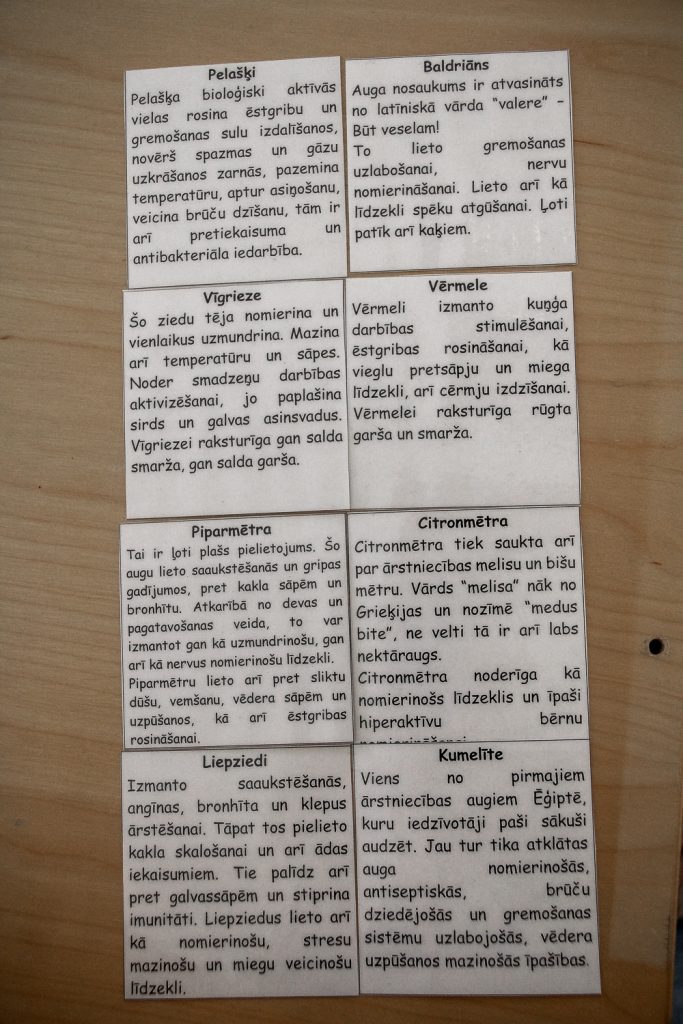 Pelašķi
Pelašķa bioloģiski aktīvās
vielas rosina ēstgribu un
gremošanas sulu izdalīšanos,
novērš spazmas un gāzu
uzkrāšanos zarnās, pazemina
temperatūru, aptur asiņošanu,
veicina brūču dzīšanu, tām ir
arī pretiekaisuma un
antibakteriāla iedarbība.
Baldriāns
Auga nosaukums ir atvasināts
no latīniskā vārda “valere” –
Būt veselam!
To lieto gremošanas
uzlabošanai, nervu
nomierināšanai. Lieto arī kā
līdzekli spēku atgūšanai. Ļoti
patīk arī kaķiem.
Vīgrieze
Šo ziedu tēja nomierina un
vienlaikus uzmundrina. Mazina
arī temperatūru un sāpes.
Noder smadzeņu darbības
aktivizēšanai, jo paplašina
sirds un galvas asinsvadus.
Vīgriezei raksturīga gan salda
smarža, gan salda garša.
Vērmele
Vērmeli izmanto kuņģa
darbības stimulēšanai,
ēstgribas rosināšanai, kā
vieglu pretsāpju un miega
līdzekli, arī cērmju izdzīšanai.
Vērmelei raksturīga rūgta
garša un smarža.
Piparmētra
Tai ir ļoti plašs pielietojums. Šo
augu lieto saaukstēšanās un gripas
gadījumos, pret kakla sāpēm un
bronhītu. Atkarībā no devas un
pagatavošanas veida, to var
izmantot gan kā uzmundrinošu, gan
arī kā nervus nomierinošu līdzekli.
Piparmētru lieto arī pret sliktu
dūšu, vemšanu, vēdera sāpēm un
uzpūšanos, kā arī ēstgribas
rosināšanai.
Citronmētra
Citronmētra tiek saukta arī
par ārstniecības melisu un bišu
mētru. Vārds “melisa” nāk no
Grieķijas un nozīmē “medus
bite”, ne velti tā ir arī labs
nektāraugs.
Citronmētra noderīga kā
nomierinošs līdzeklis un īpaši
hiperaktīvu bērnu
Liepziedi
Izmanto saaukstēšanās,
angīnas, bronhīta un klepus
ārstēšanai. Tāpat tos pielieto
kakla skalošanai un arī ādas
iekaisumiem. Tie palīdz arī
pret galvassāpēm un stiprina
imunitāti. Liepziedus lieto arī
kā nomierinošu, stresu
mazinošu un miegu veicinošu
līdzekli.
Kumelīte
Viens no pirmajiem
ārstniecības augiem Ēģiptē,
kuru iedzīvotāji paši sākuši
audzēt. Jau tur tika atklātas
auga nomierinošās,
antiseptiskās, brūču
dziedējošās un gremošanas
sistēmu uzlabojošās, vēdera
uzpūšanos mazinošās īpašības.